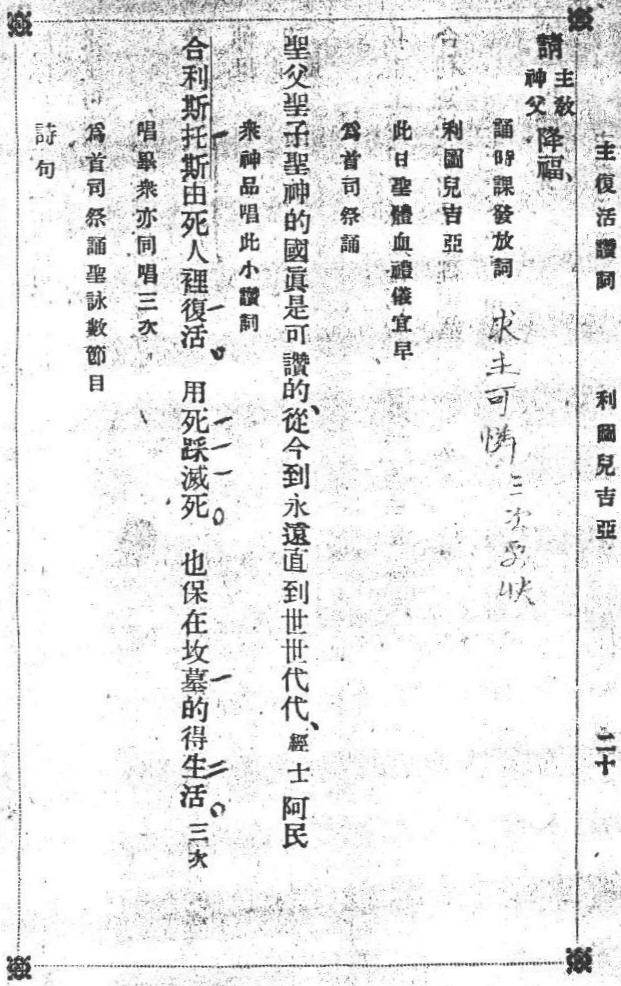 主復活讚詞 利圖兒吉亞 二十
請主教神父降福、
誦時課發放詞 求主可憐 三次
利圖兒吉亞
此日聖體血禮儀宜早
為首司祭誦
聖父聖子聖神的國眞是可讚的、從今到永遠直到世世代代、經士 阿民
衆神品唱此小讚詞
合利斯托斯由死人裡復活。用死踩滅死。也保在坟墓的得生活。三次
唱畢衆亦同唱三次
為首司祭誦聖詠數節目
詩句